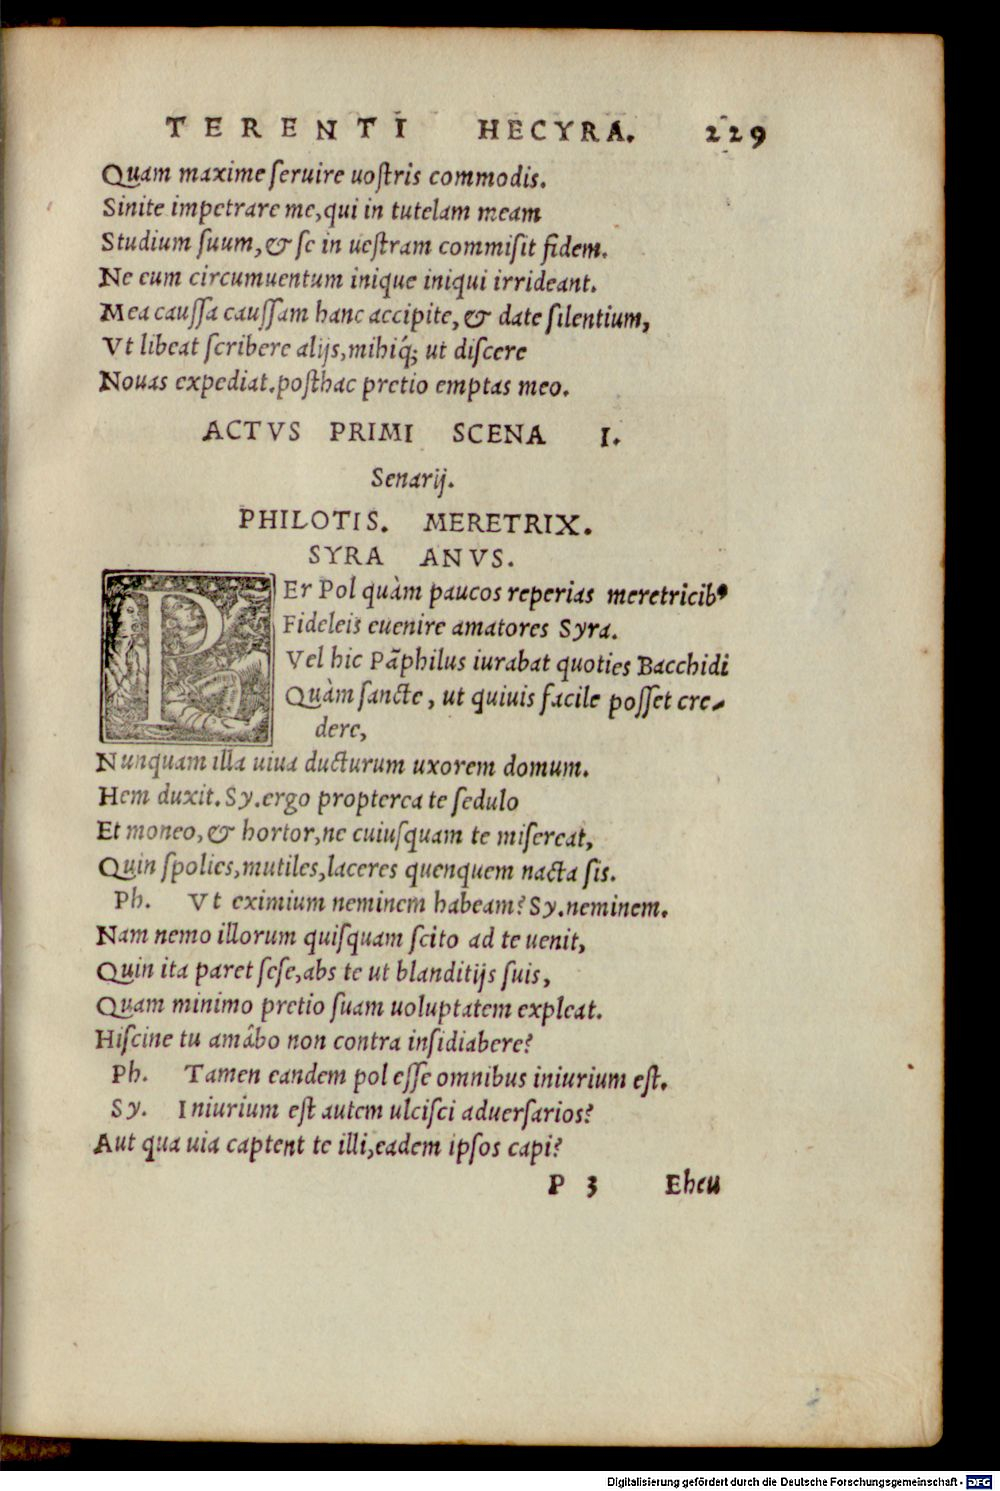 TERENTI HECYRA. 229
Quam maxime ſeruire uoſtris commodis.
Sinite impetrare me, qui in tutelam meam
Studium ſuum, & ſe in ueſtram commiſit fidem.
Ne eum circumuentum inique iniqui irrideant.
Mea cauſſa cauſſam hanc accipite, & date ſilentium,
Vt libeat ſcribere alijs, mihiq́; ut diſcere
Nouas expediat. poſthac pretio emptas meo.
ACTVS PRIMI SCENA I.
Senarij.
PHILOTIS. MERETRIX.
SYRA ANVS.
PEr Pol quàm paucos reperias meretricibꝰ
Fideleis euenire amatores Syra.
Vel hic Pãphilus iurabat quoties Bacchidi
Quàm ſancte, ut quiuis facile poſſet cre-
dere,
Nunquam illa uiua ducturum uxorem domum.
Hem duxit. Sy. ergo propterea te ſedulo
Et moneo, & hortor, ne cuiuſquam te miſereat,
Quin ſpolies, mutiles, laceres quenquem nacta ſis.
Ph. Vt eximium neminem habeam? Sy. neminem.
Nam nemo illorum quiſquam ſcito ad te uenit,
Quin ita paret ſeſe, abs te ut blanditijs ſuis,
Quam minimo pretio ſuam uoluptatem expleat.
Hiſcine tu amâbo non contra inſidiabere?
Ph. Tamen eandem pol eſſe omnibus iniurium eſt.
Sy. Iniurium eſt autem ulciſci aduerſarios?
Aut qua uia captent te illi, eadem ipſos capi?
P 3 Eheu
Digitalisierung gefördert durch die Deutsche Forschungsgemeinschaft - DFG